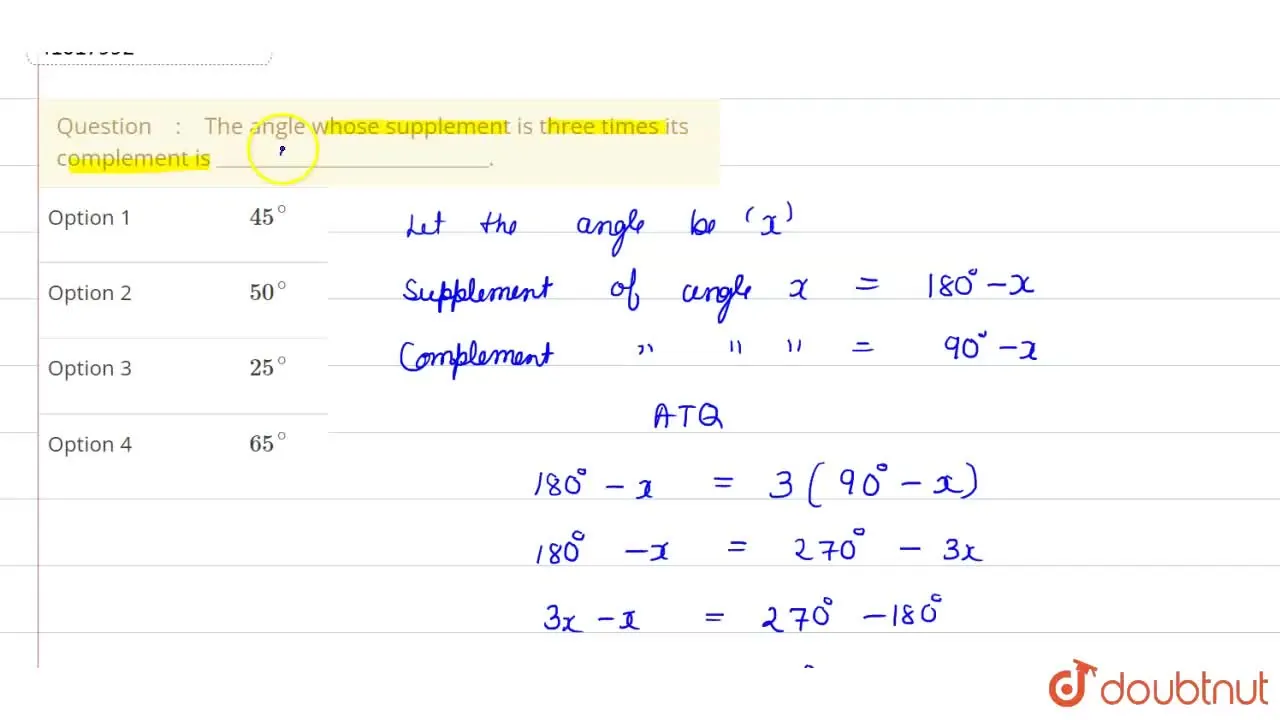 Question : The angle whose supplement is three times its
complement is ______________________.
Option 1 45°
Option 2 50°
Option 3 25°
Option 4 65°
Let the angle be (x)
Supplement of angle x = 180° - x
Complement " " " = 90° - x
ATQ
180° - x = 3(90° - x)
180° - x = 270° - 3x
3x - x = 270° - 180°
doubtnut